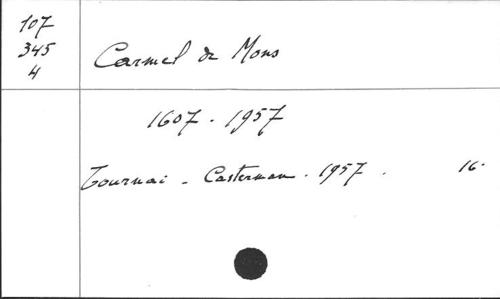 107
345
4
Carmel de Mons
1607 - 1957
Tournai - Casterman - 1957 . 16.